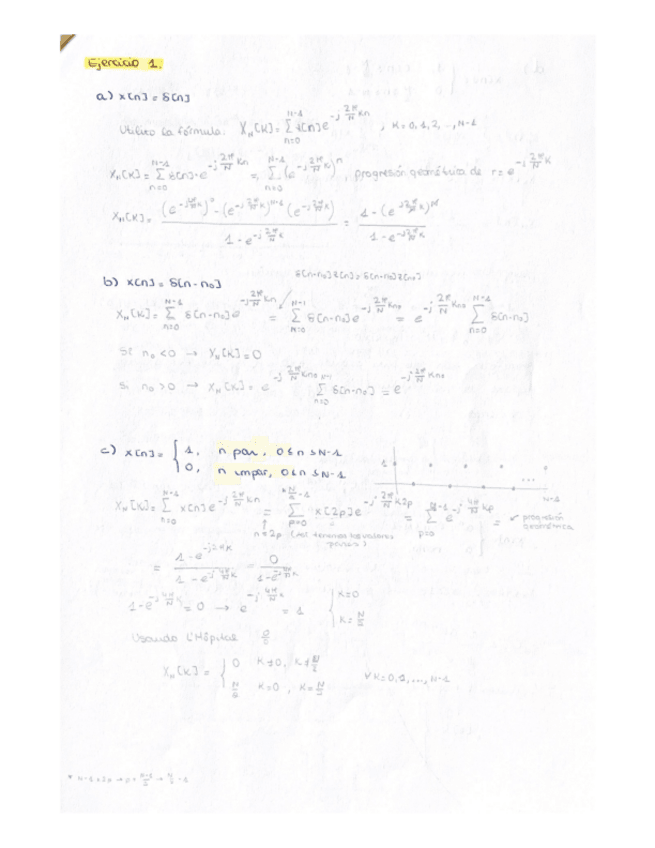 Ejercicio 1.
a) x[n] = δ[n]
Utilizo la fórmula: X_N[k] = Σ_{n=0}^{N-1} x[n] e^{-j 2π/N kn} , k = 0, 1, 2, ..., N-1
X_N[k] = Σ_{n=0}^{N-1} δ[n]·e^{-j 2π/N kn} = Σ_{n=0}^{N-1} (e^{-j 2π/N k})^n , progresión geométrica de r = e^{-j 2π/N k}
X_N[k] = ((e^{-j 2π/N k})^0 - (e^{-j 2π/N k})^{N-1} (e^{-j 2π/N k})) / (1 - e^{-j 2π/N k}) = (1 - (e^{-j 2π/N k})^N) / (1 - e^{-j 2π/N k})
b) x[n] = δ[n-n₀]
X_N[k] = Σ_{n=0}^{N-1} δ[n-n₀] e^{-j 2π/N kn} = Σ_{n=0}^{N-1} δ[n-n₀] e^{-j 2π/N kn₀} = e^{-j 2π/N kn₀} Σ_{n=0}^{N-1} δ[n-n₀]
Si n₀ < 0 → X_N[k] = 0
Si n₀ > 0 → X_N[k] = e^{-j 2π/N kn₀} Σ_{n=0}^{N-1} δ[n-n₀] = e^{-j 2π/N kn₀}
c) x[n] = { 1, n par, 0 ≤ n ≤ N-1
0, n impar, 0 ≤ n ≤ N-1
1
...
N-1
X_N[k] = Σ_{n=0}^{N-1} x[n] e^{-j 2π/N kn} = Σ_{p=0}^{*N/2 -1} x[2p] e^{-j 2π/N k2p} = Σ_{p=0} e^{-j 4π/N kp} = progresión geométrica
n = 2p
= (1 - e^{-j2πk}) / (1 - e^{-j 4π/N k}) = 0 / (1 - e^{-j 4π/N k})
1 - e^{-j 4π/N k} = 0 → e^{-j 4π/N k} = 1 { k = 0
k = N/2
Usando L'Hôpital 0/0
X_N[k] = { 0 k ≠ 0, k ≠ N/2
N/2 k = 0, k = N/2
∀ k = 0, 1, ..., N-1